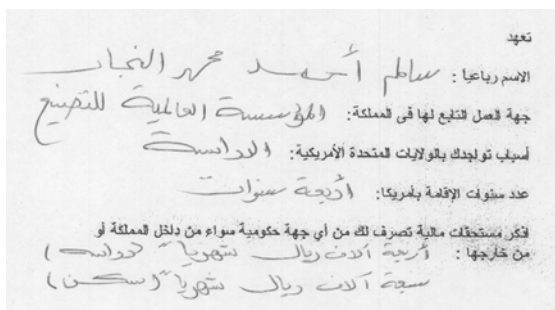 تعهد
الاسم رباعيا : سالم أحمد محمد النجار
جهة العمل التابع لها فى المملكة: المؤسسة العالمية للتصنيع
أسباب تواجدك بالولايات المتحدة الأمريكية: الدراسة
عدد سنوات الإقامة بأمريكا: أربعة سنوات
اذكر مستحقات مالية تصرف لك من أي جهة حكومية سواء من داخل المملكة أو
من خارجها : أربعة آلاف ريال شهرياً (دراسه)
سبعة آلاف ريال شهرياً (سكن)